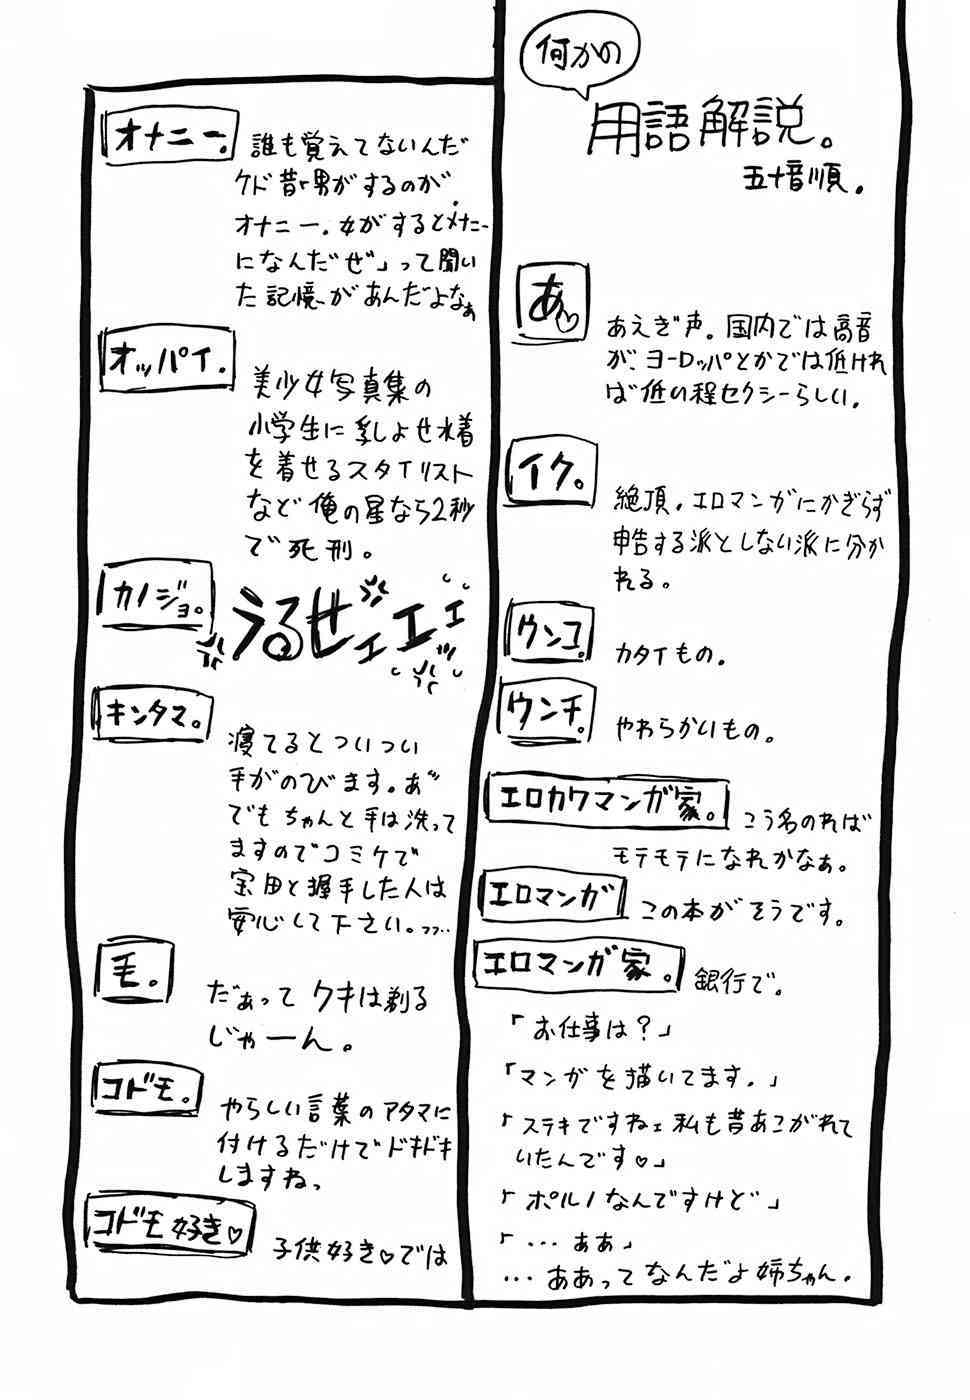 何かの
用語解説。
五十音順。
あ♡
あえぎ声。国内では高音
が、ヨーロッパとかでは低けれ
ば低い程セクシーらしい。
イク。
絶頂。エロマンガにかぎらず
申告する派としない派に分か
れる。
ウンコ。
カタイもの。
ウンチ。
やわらかいもの。
エロカワマンガ家。
こう名のれば
モテモテになれかなぁ。
エロマンガ
この本がそうです。
エロマンガ家。
銀行で。
「お仕事は?」
「マンガを描いてます。」
「ステキですねェ私も昔あこがれて
いたんです♡」
「ポルノなんですけど」
「…ああ」
…ああってなんだよ姉ちゃん。
オナニー。
誰も覚えてないんだ
ケド昔「男がするのが
オナニー。女がするとメナニー
になんだぜ」って聞い
た記憶があんだよなぁ
オッパイ。
美少女写真集の
小学生に乳しよせ水着
を着せるスタイリスト
など俺の星なら2秒
で死刑。
カノジョ。
うるせェエェ
キンタマ。
寝てるとついつい
手がのびます。あ
でもちゃんと手は洗って
ますのでコミケで
握手した人は
安心して下さい。
毛。